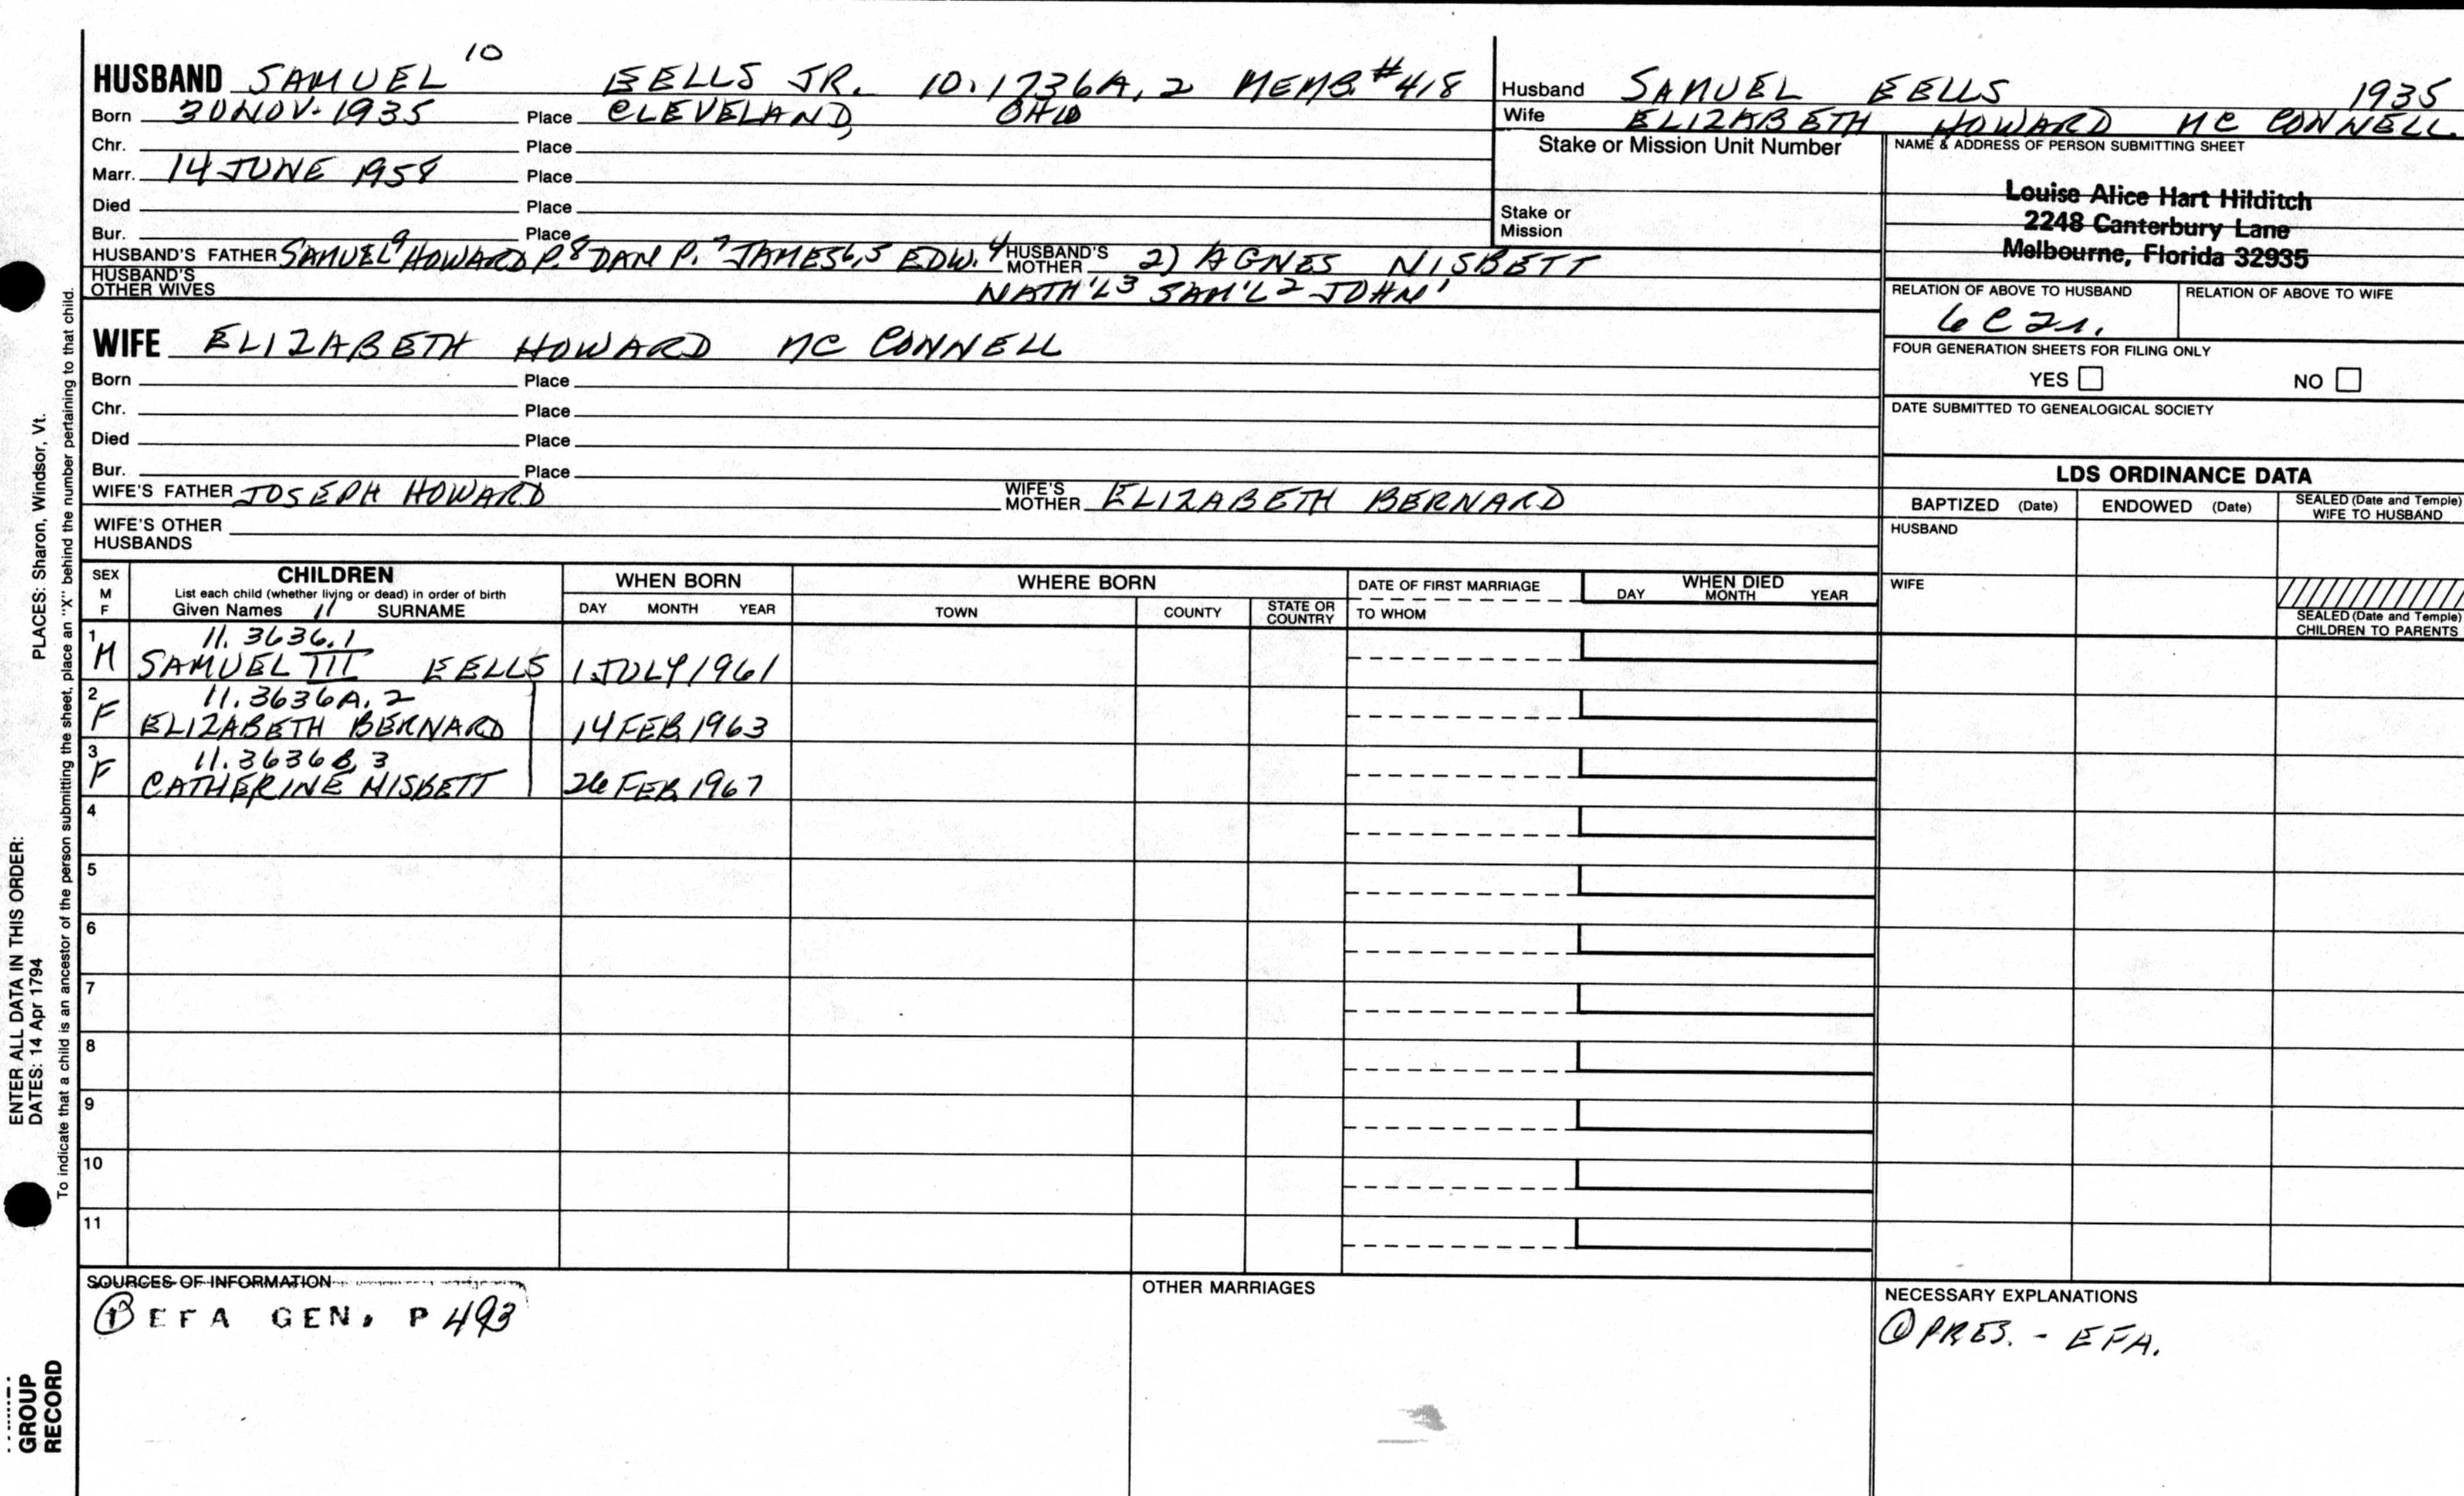 HUSBAND SAMUEL 10 EELLS JR. 10.1736A,2 MEMB. #418
Born 30 NOV. 1935 Place CLEVELAND, OHIO
Chr. Place
Marr. 14 JUNE 1958 Place
Died Place
Bur. Place
HUSBAND'S FATHER SAMUEL9 HOWARD P.8 DAN P.7 JAMES6,5 EDW.4 HUSBAND'S MOTHER 2) AGNES NISBETT
HUSBAND'S OTHER WIVES NATH'L3 SAM'L2 JOHN1
Husband SAMUEL EELLS 1935
Wife ELIZABETH HOWARD MC CONNELL
Stake or Mission Unit Number
Stake or Mission
NAME & ADDRESS OF PERSON SUBMITTING SHEET
Louise Alice Hart Hilditch
2248 Canterbury Lane
Melbourne, Florida 32935
RELATION OF ABOVE TO HUSBAND RELATION OF ABOVE TO WIFE
6C2r.
FOUR GENERATION SHEETS FOR FILING ONLY
YES NO
DATE SUBMITTED TO GENEALOGICAL SOCIETY
WIFE ELIZABETH HOWARD MC CONNELL
Born Place
Chr. Place
Died Place
Bur. Place
WIFE'S FATHER JOSEPH HOWARD WIFE'S MOTHER ELIZABETH BERNARD
WIFE'S OTHER HUSBANDS
LDS ORDINANCE DATA
BAPTIZED (Date) ENDOWED (Date) SEALED (Date and Temple) WIFE TO HUSBAND
HUSBAND
WIFE
SEALED (Date and Temple) CHILDREN TO PARENTS
SEX M F CHILDREN WHEN BORN WHERE BORN DATE OF FIRST MARRIAGE WHEN DIED
List each child (whether living or dead) in order of birth
Given Names 11 SURNAME DAY MONTH YEAR TOWN COUNTY STATE OR COUNTRY TO WHOM DAY MONTH YEAR
1 11.3636,1
M SAMUEL III EELLS 1 JULY 1961
2 11.3636A,2
F ELIZABETH BERNARD 14 FEB 1963
3 11.3636B,3
F CATHERINE NISBETT 26 FEB 1967
4
5
6
7
8
9
10
11
SOURCES OF INFORMATION
① EFA GEN. P 493
OTHER MARRIAGES
NECESSARY EXPLANATIONS
① PRES. - EFA.
ENTER ALL DATA IN THIS ORDER:
DATES: 14 Apr 1794 PLACES: Sharon, Windsor, Vt.
To indicate that a child is an ancestor of the person submitting the sheet, place an "X" behind the number pertaining to that child.
GROUP
RECORD